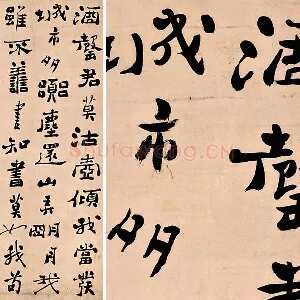 酒罄君莫沽壺傾我當發
城市多囂塵還山弄明月我
雖不善書知書莫如我苟
酒罄
城市多